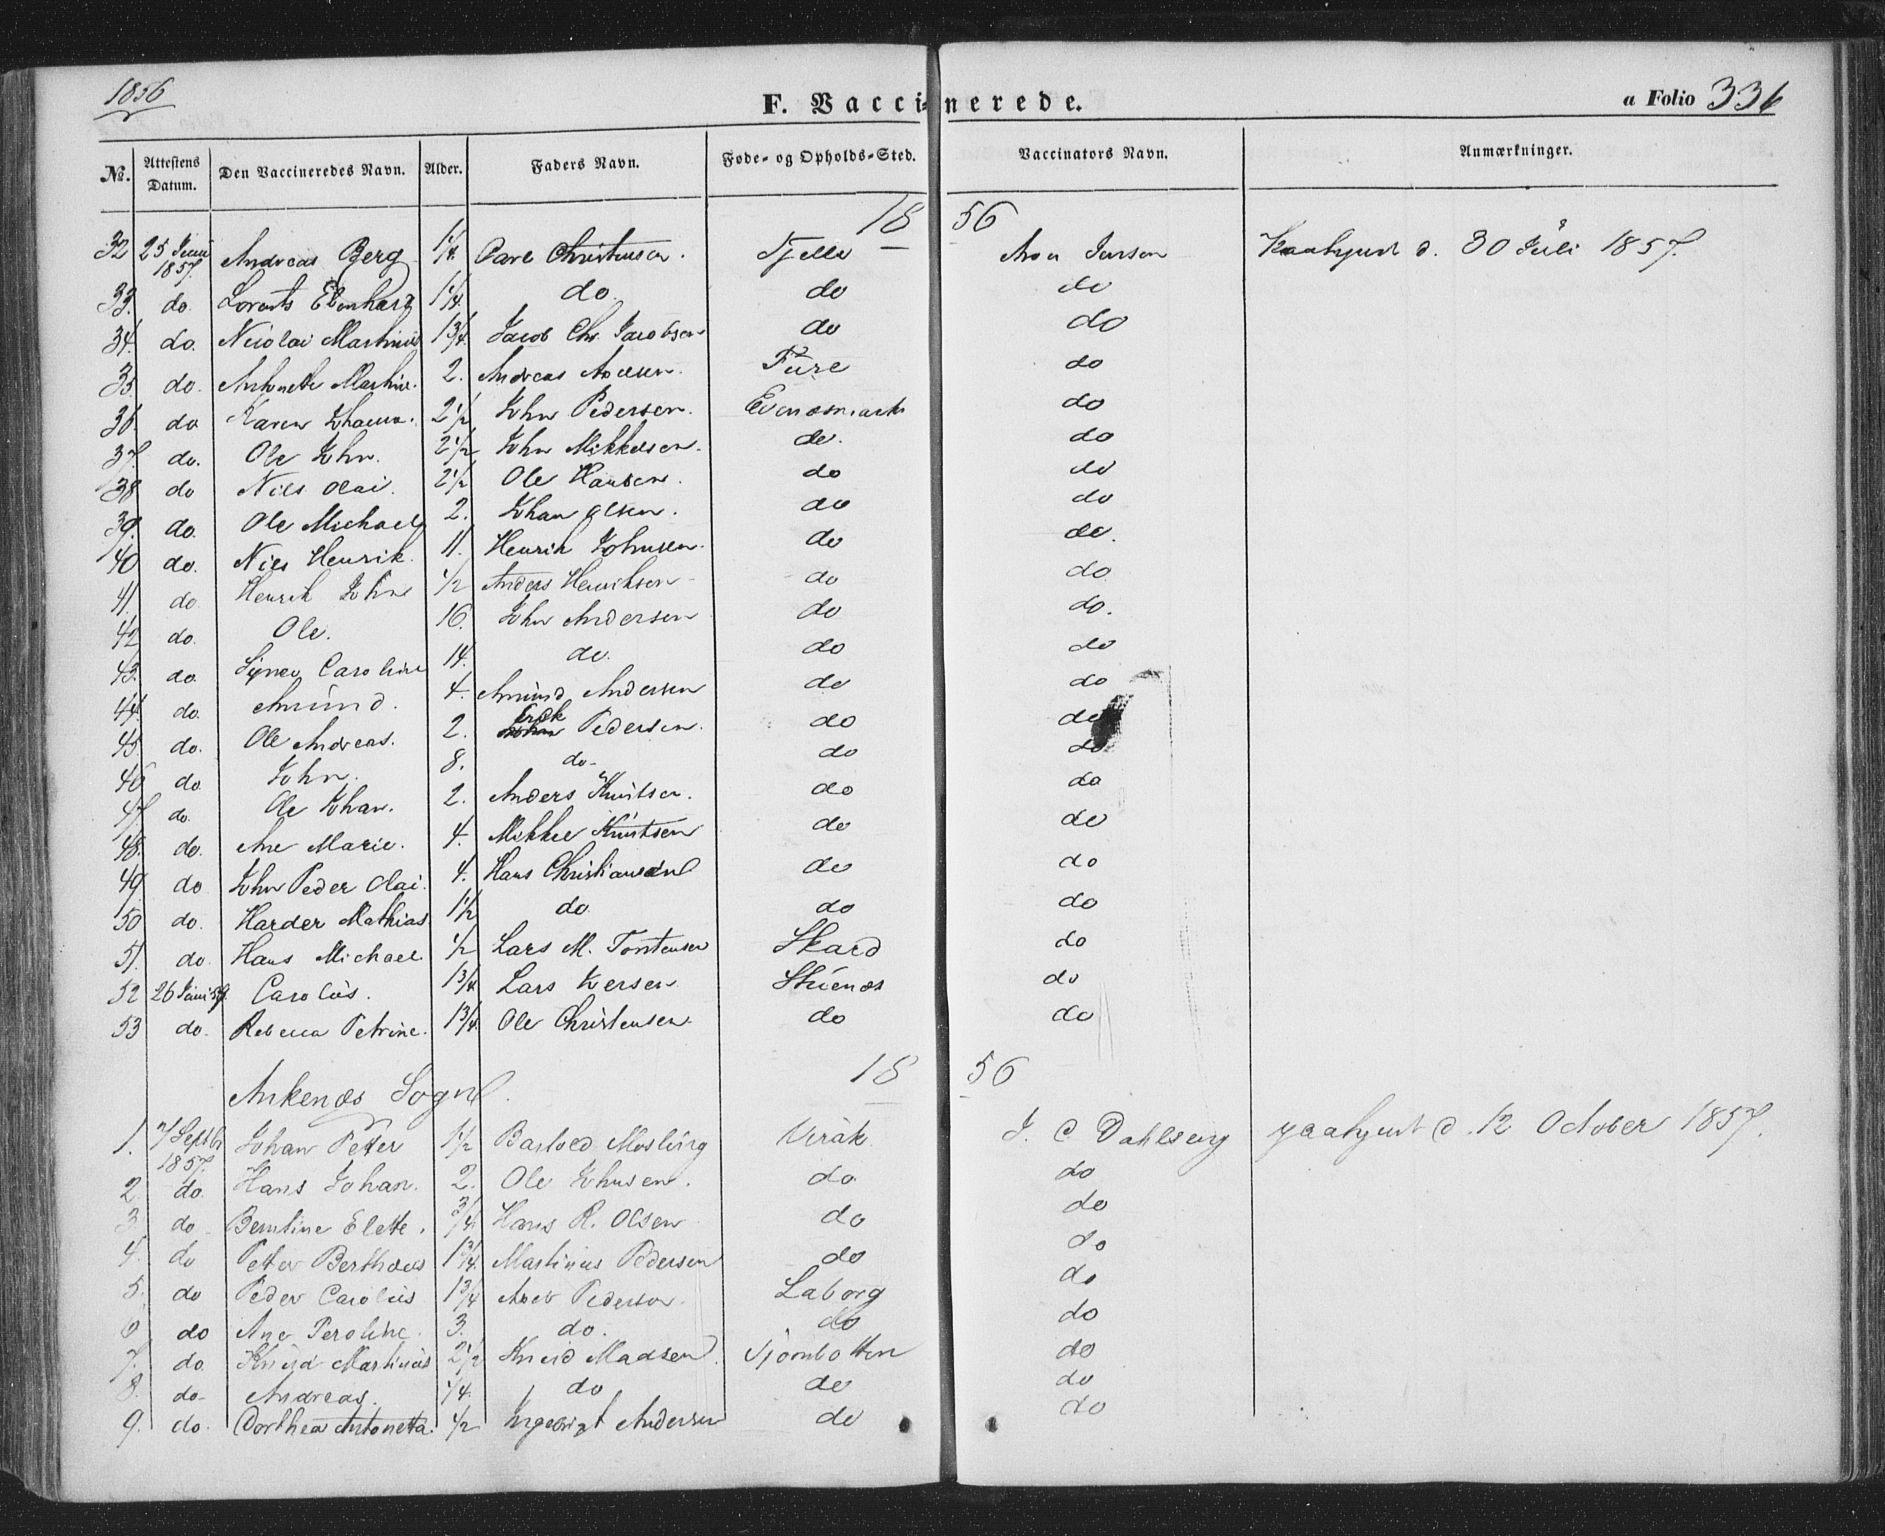 1856
F. Vaccinerede.
a Folio 336
No. Attestens Datum. Den Vaccineredes Navn. Alder. Faders Navn. Føde- og Opholds-Sted. Vaccinators Navn. Anmærkninger.
1856
32 25 Juni 1857. Andreas Berg 1 1/4. Christensen. Fjelle Jensen 30 Juli 1857.
33. do. Lorents Ebenhard 1 1/4. do. do do
34. do. Nicolai Martinus 1 3/4. Jacob Chr. Jacobsen do do
35 do. Antonette Martine. 2. Andreas Fure do
36 do Karen 2 1/2 John Pedersen. Evenesmark do
37. do. Ole John. 2 1/2 John Mikkelsen. do. do
38 do Nils Olai. 2 1/2 Ole Hansen. do do
39. do. Ole Michael 2. Johan Olsen. do do
40 do. Nils Henrik. 11. Henrik Johnsen. do do.
41. do Henrik John 1/2 Anders Henriksen do do
42 do. Ole. 16. John Andersen do do.
43. do. Signe Caroline 14. do. do do
44. do. Amund. 4. Amund Andersen do do
45. do. Ole Andreas. 2. Erik Pedersen. do do
46 do. John. 8. do. do do
47. do. Ole Johan. 2. Anders Knutsen. do do
48. do. Ane Marie. 4. Mikkel Knutsen do do
49. do John Peder Olai. 4. Hans Christiansen do do
50 do. Harder Mathias 1 1/2 do do do
51. do. Hans Michael 1/2 Lars M. Torstensen Skard do
52 26 Juni 57. Carolus. 1 3/4 Lars Iversen Stuenæs do
53 do. Rebecca Petrine. 1 3/4. Ole Christensen. do do
1856
Ankenæs Sogn.
1. 7 Septb 1857. Johan Petter 1 1/2 Mosling Virak J. C Dahlberg paategnet d. 12 October 1857.
2. do. Hans Johan. 2. Ole Johnsen. do. do
3. do Berntine Elette. 3/4. Hans R. Olsen do do
4. do Petter Bertheus 1 3/4. Martinus Pedersen do do
5. do Peder Carolus 1 3/4 Pedersen. Laborg do
6 do Ane Peroline. 3. do. do do
7. do. Knud Martinus 2 1/2 Knud Madsen. Sjombotten do
8. do. Andreas. 1/4. do do do
9. do. Dorthea Antonetta. 1/2 Ingebrigt Andersen do do